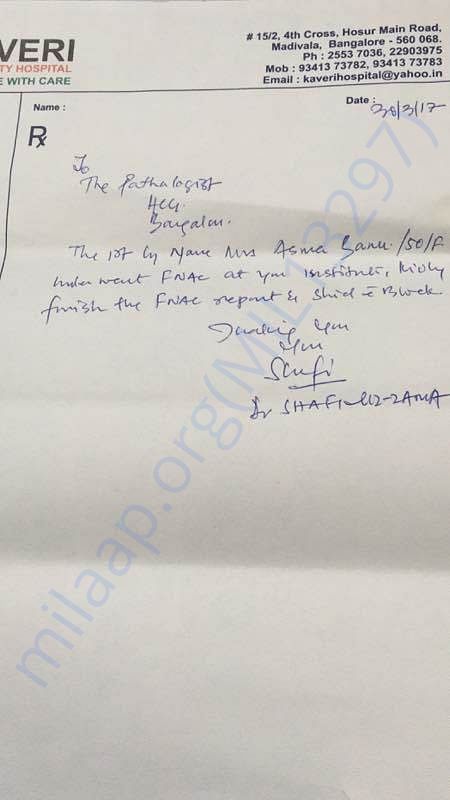 # 15/2, 4th Cross, Hosur Main Road,
Madivala, Bangalore - 560 068.
Ph : 2553 7036, 22903975
Mob : 93413 73782, 93413 73783
Email : kaverihospital@yahoo.in
VERI
TY HOSPITAL
E WITH CARE
Name :
Date : 30/3/17
Rx
To
The Pathalogist
HCG.
Bangalore.
The pt by Name Mrs Asma Banu /50/F
under went FNAC at your institute, kindly
furnish the FNAC report & Slid c̄ Block
Thanking you
your
Shafi
Dr SHAFI-UZ-ZAMA
milaap.org(MIL13297)